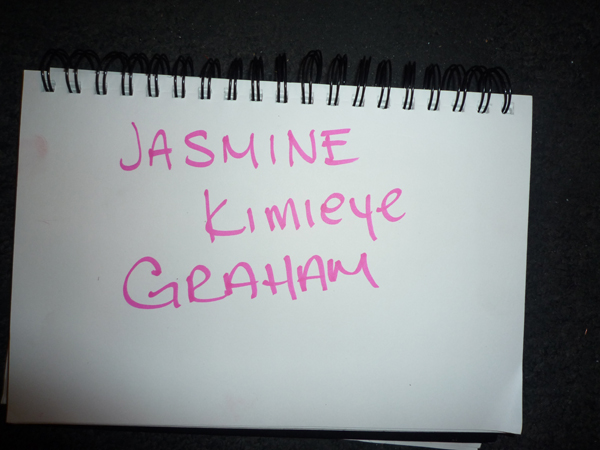 JASMINE
Kimieye
GRAHAM